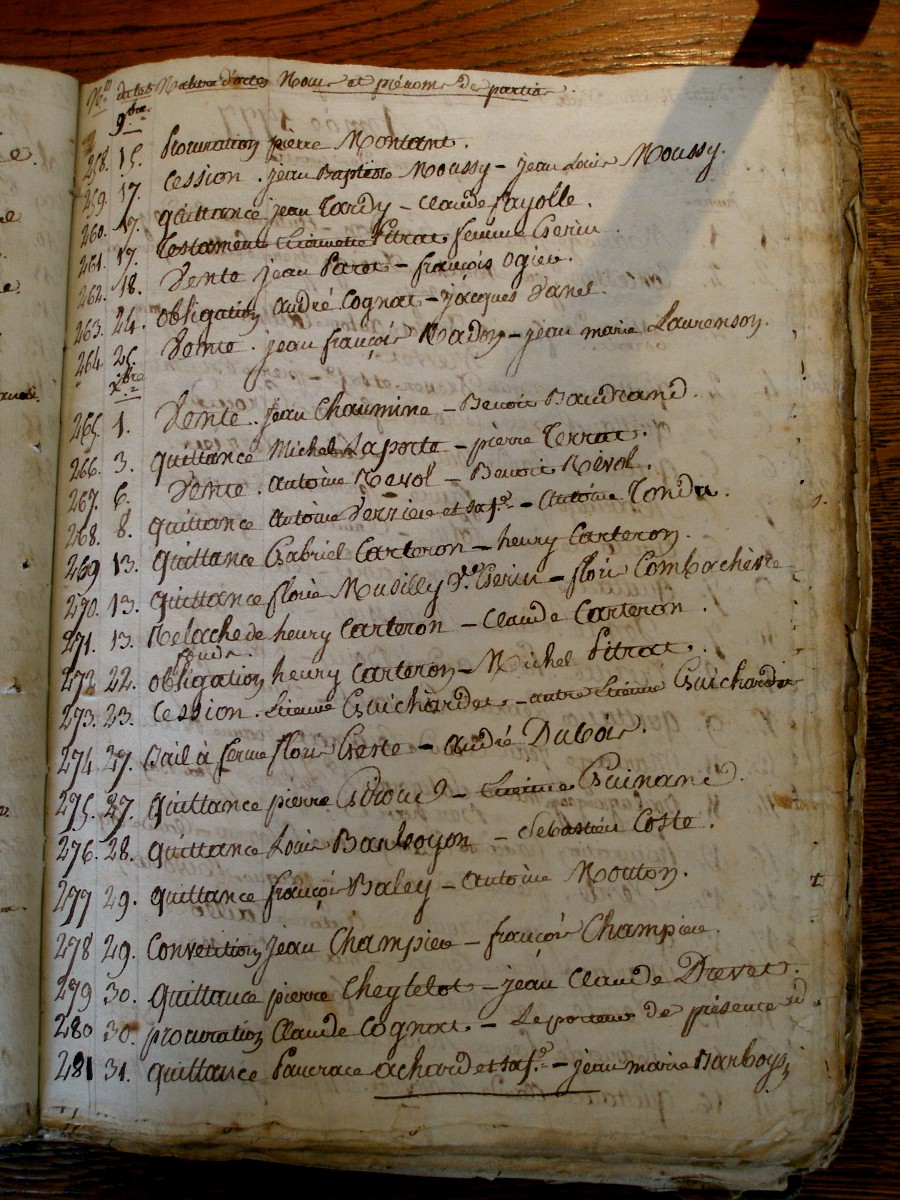 Nos dates Nature d'actes Noms et prénoms de parties.
9.bre
258. 15. Procuration pierre Montant.
259. 17. Cession. jean Baptiste Moussy - jean Louis Moussy.
260. 17. quittance jean Tardy - Claude fayolle.
261. 17. Testament Pitrat femme Gerin.
262. 18. Vente jean Parot - françois Ogier.
263. 24. obligation andré Cognat - jacques Danel.
264. 25. Vente. jean françois Nadon - jean marie Laurenson.
X.bre
265. 1. Vente. jean Chaumine - Benoit Baudrand.
266. 3. quittance Michel Laporte - pierre Terrat.
267. 6. Vente. antoine Revol - Benoit Révol.
268. 8. quittance antoine Verrière et sa f.e - antoine Tondu.
269 13. quittance Gabriel Carteron - henry Carteron.
270. 13. quittance florie V.ve Gerin - floris
271. 13. Relache de henry Carteron - Claude Carteron.
272 22. obligation henry Carteron - Michel Pitrat.
273. 23. Cession. Etienne Guichardet - autre Etienne Guichardet
274 27. Bail à ferme floris Geste - andré Dubois.
275. 27. quittance pierre Giroud - Guinand.
276. 28. quittance Louis - Sebastien Coste.
277 29. quittance françois Baley - antoine Mouton.
278 29. Convention jean Champier - françois Champier.
279 30. quittance pierre Cheytelot - jean Claude Drevet.
280 30. procuration Claude Cognat - Le porteur de présente
281 31. quittance Pancrace achard et sa f.e - jean marie